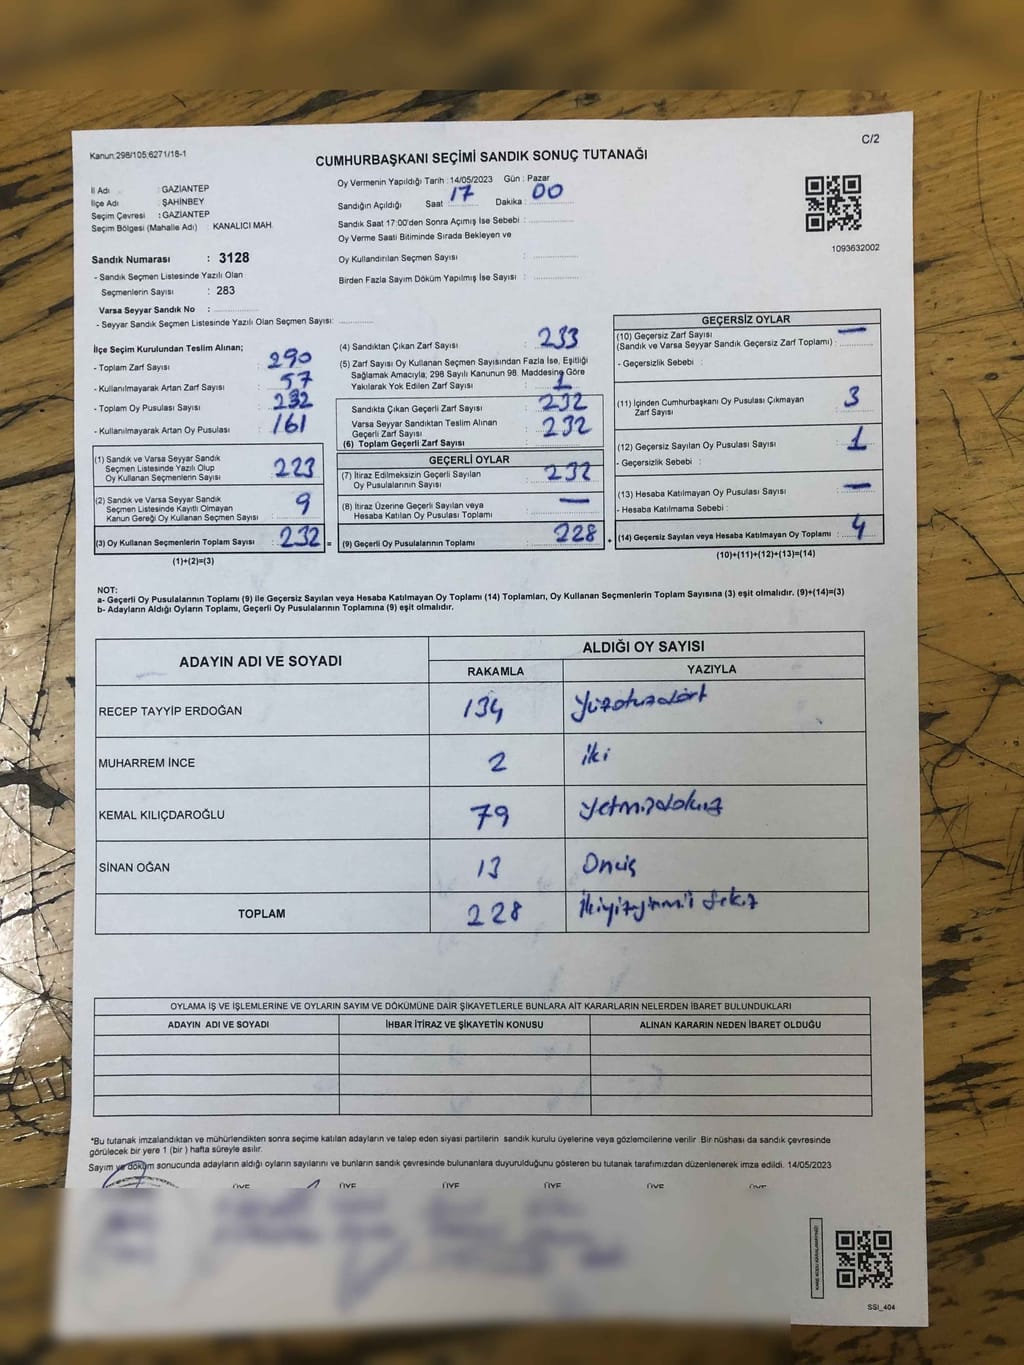 Kanun:298/105;6271/18-1
C/2
CUMHURBAŞKANI SEÇİMİ SANDIK SONUÇ TUTANAĞI
İl Adı : GAZİANTEP
İlçe Adı : ŞAHİNBEY
Seçim Çevresi : GAZİANTEP
Seçim Bölgesi (Mahalle Adı) : KANALICI MAH.
Sandık Numarası : 3128
- Sandık Seçmen Listesinde Yazılı Olan
Seçmenlerin Sayısı : 283
Varsa Seyyar Sandık No :
- Seyyar Sandık Seçmen Listesinde Yazılı Olan Seçmen Sayısı:
Oy Vermenin Yapıldığı Tarih : 14/05/2023 Gün : Pazar
Sandığın Açıldığı Saat 17 Dakika : 00
Sandık Saat 17:00'den Sonra Açımış İse Sebebi :
Oy Verme Saati Bitiminde Sırada Bekleyen ve
Oy Kullandırılan Seçmen Sayısı :
Birden Fazla Sayım Döküm Yapılmış İse Sayısı :
1093632002
İlçe Seçim Kurulundan Teslim Alınan;
- Toplam Zarf Sayısı : 290
- Kullanılmayarak Artan Zarf Sayısı : 57
- Toplam Oy Pusulası Sayısı : 232
- Kullanılmayarak Artan Oy Pusulası : 161
(1) Sandık ve Varsa Seyyar Sandık
Seçmen Listesinde Yazılı Olup
Oy Kullanan Seçmenlerin Sayısı : 223
(2) Sandık ve Varsa Seyyar Sandık
Seçmen Listesinde Kayıtlı Olmayan
Kanun Gereği Oy Kullanan Seçmen Sayısı : 9
(3) Oy Kullanan Seçmenlerin Toplam Sayısı : 232 =
(1)+(2)=(3)
(4) Sandıktan Çıkan Zarf Sayısı : 233
(5) Zarf Sayısı Oy Kullanan Seçmen Sayısından Fazla İse, Eşitliği
Sağlamak Amacıyla; 298 Sayılı Kanunun 98. Maddesine Göre
Yakılarak Yok Edilen Zarf Sayısı : 1
Sandıkta Çıkan Geçerli Zarf Sayısı : 232
Varsa Seyyar Sandıktan Teslim Alınan
Geçerli Zarf Sayısı : 232
(6) Toplam Geçerli Zarf Sayısı :
GEÇERLİ OYLAR
(7) İtiraz Edilmeksizin Geçerli Sayılan
Oy Pusulalarının Sayısı : 232
(8) İtiraz Üzerine Geçerli Sayılan veya
Hesaba Katılan Oy Pusulası Toplamı : —
(9) Geçerli Oy Pusulalarının Toplamı : 228 +
GEÇERSİZ OYLAR
(10) Geçersiz Zarf Sayısı
(Sandık ve Varsa Seyyar Sandık Geçersiz Zarf Toplamı) : —
- Geçersizlik Sebebi :
(11) İçinden Cumhurbaşkanı Oy Pusulası Çıkmayan
Zarf Sayısı : 3
(12) Geçersiz Sayılan Oy Pusulası Sayısı : 1
- Geçersizlik Sebebi :
(13) Hesaba Katılmayan Oy Pusulası Sayısı : —
- Hesaba Katılmama Sebebi :
(14) Geçersiz Sayılan veya Hesaba Katılmayan Oy Toplamı : 4
(10)+(11)+(12)+(13)=(14)
NOT:
a- Geçerli Oy Pusulalarının Toplamı (9) ile Geçersiz Sayılan veya Hesaba Katılmayan Oy Toplamı (14) Toplamları, Oy Kullanan Seçmenlerin Toplam Sayısına (3) eşit olmalıdır. (9)+(14)=(3)
b- Adayların Aldığı Oyların Toplamı, Geçerli Oy Pusulalarının Toplamına (9) eşit olmalıdır.
ADAYIN ADI VE SOYADI ALDIĞI OY SAYISI
RAKAMLA YAZIYLA
RECEP TAYYİP ERDOĞAN 134 Yüzotuzdört
MUHARREM İNCE 2 iki
KEMAL KILIÇDAROĞLU 79 yetmişdokuz
SİNAN OĞAN 13 Onüç
TOPLAM 228 ikiyüzyirmi sekiz
OYLAMA İŞ VE İŞLEMLERİNE VE OYLARIN SAYIM VE DÖKÜMÜNE DAİR ŞİKAYETLERLE BUNLARA AİT KARARLARIN NELERDEN İBARET BULUNDUKLARI
ADAYIN ADI VE SOYADI İHBAR İTİRAZ VE ŞİKAYETİN KONUSU ALINAN KARARIN NEDEN İBARET OLDUĞU
*Bu tutanak imzalandıktan ve mühürlendikten sonra seçime katılan adayların ve talep eden siyasi partilerin sandık kurulu üyelerine veya gözlemcilerine verilir. Bir nüshası da sandık çevresinde
görülecek bir yere 1 (bir ) hafta süreyle asılır.
Sayım ve döküm sonucunda adayların aldığı oyların sayılarını ve bunların sandık çevresinde bulunanlara duyurulduğunu gösteren bu tutanak tarafımızdan düzenlenerek imza edildi. 14/05/2023
ÜYE ÜYE ÜYE ÜYE ÜYE ÜYE
SSI_404